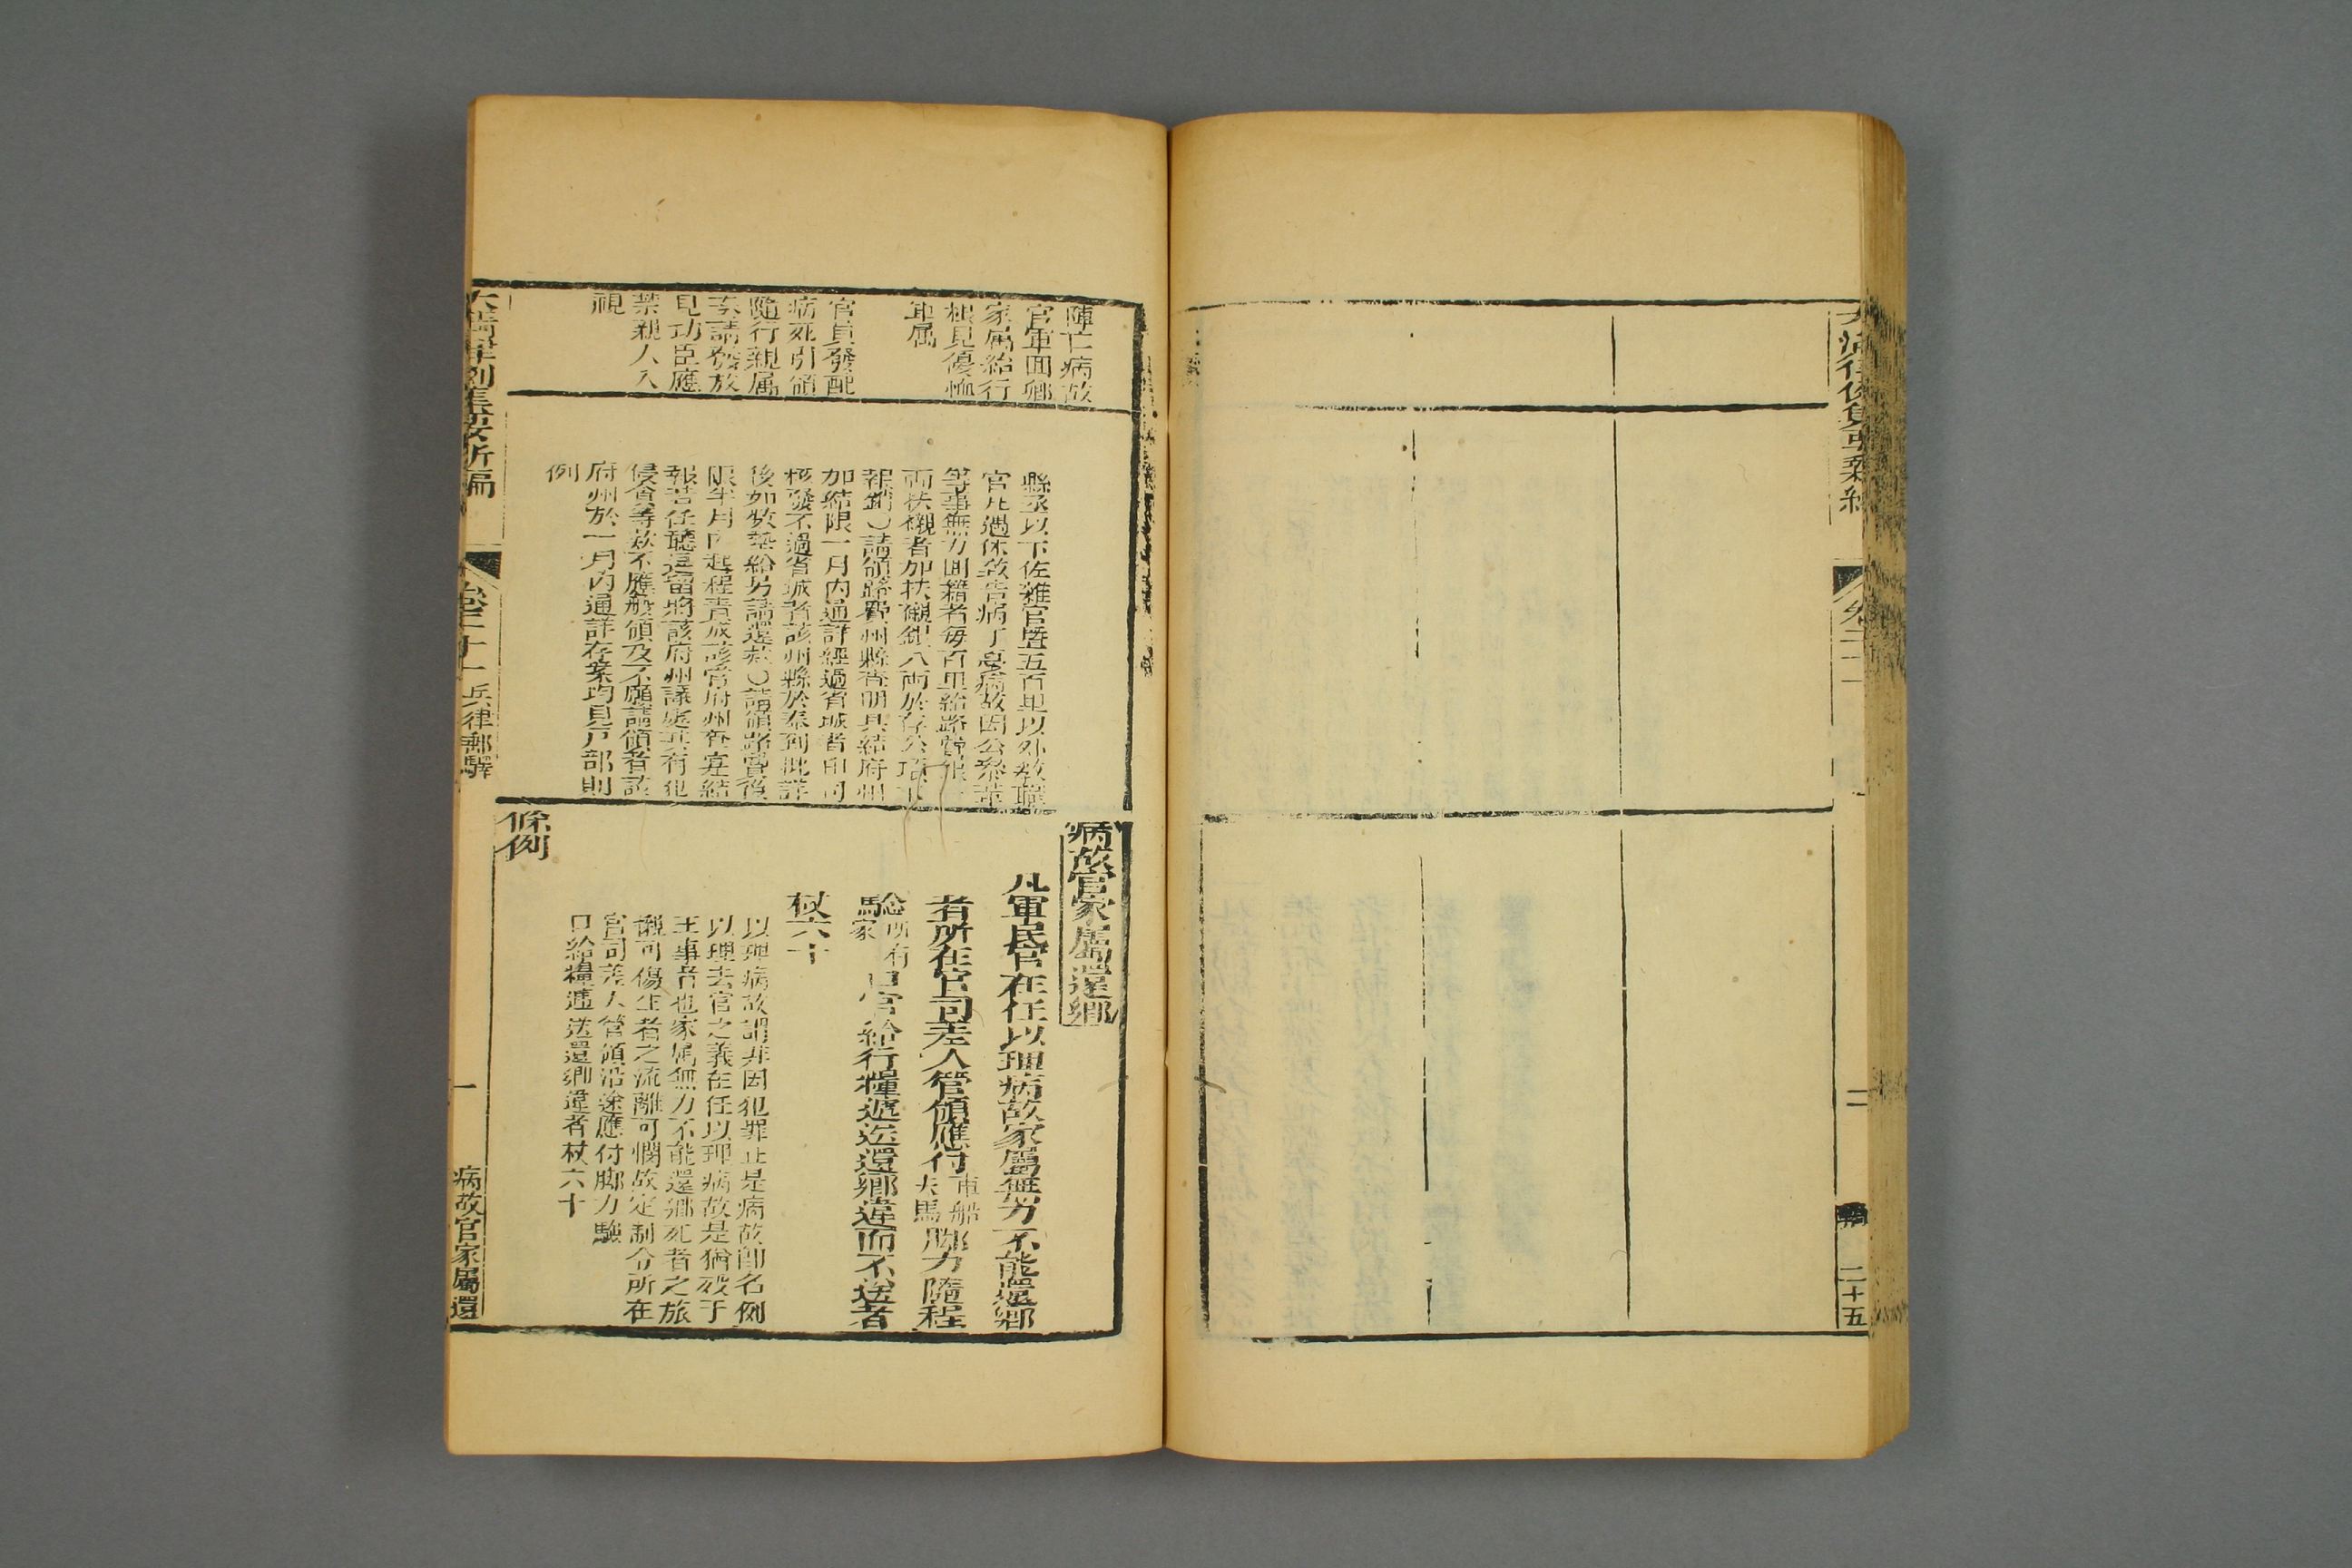 二十五
陣亡病故
官軍囬鄉
家屬給行
糧見優恤
軍属
官員發配
病死引領
隨行親属
奏請發放
見功臣應
禁親人入
視
縣丞以下佐雜官暨五百里以外教職
官凡遇休致告病丁憂病故因公叅革
等事無力囬籍者每百里給路費銀一
兩扶櫬者加扶櫬銀八兩於存公項下
報銷〇請領路費州縣查明具結府州
加結限一月內通詳經過省城者印司
核發不過省城者該州縣於奉到批詳
後如數墊給另請還欵〇請領路費後
限半月內起程責成該管府州查寔結
報若任聽逗留將該府州議處其有犯
侵貪等欵不應給領及不願請領者該
府州於一月內通詳存案均見戶部則
例
病故官家屬還鄉
凡軍民官在任以理病故家屬無力不能還鄉
者所在官司差人管領應付車船夫馬脚力隨程
驗所有家口官給行糧遞送還鄉違而不送者
杖六十
以理病故謂非因犯罪止是病故卽名例
以理去官之義在任以理病故是猶歿于
王事者也家属無力不能還鄉死者之旅
櫬可傷生者之流離可憫故定制令所在
官司差人管領沿途應付脚力驗
口給糧遞送還鄉違者杖六十
條例
大清律例集要新編 卷二十一 兵律郵驛 一 病故官家屬還